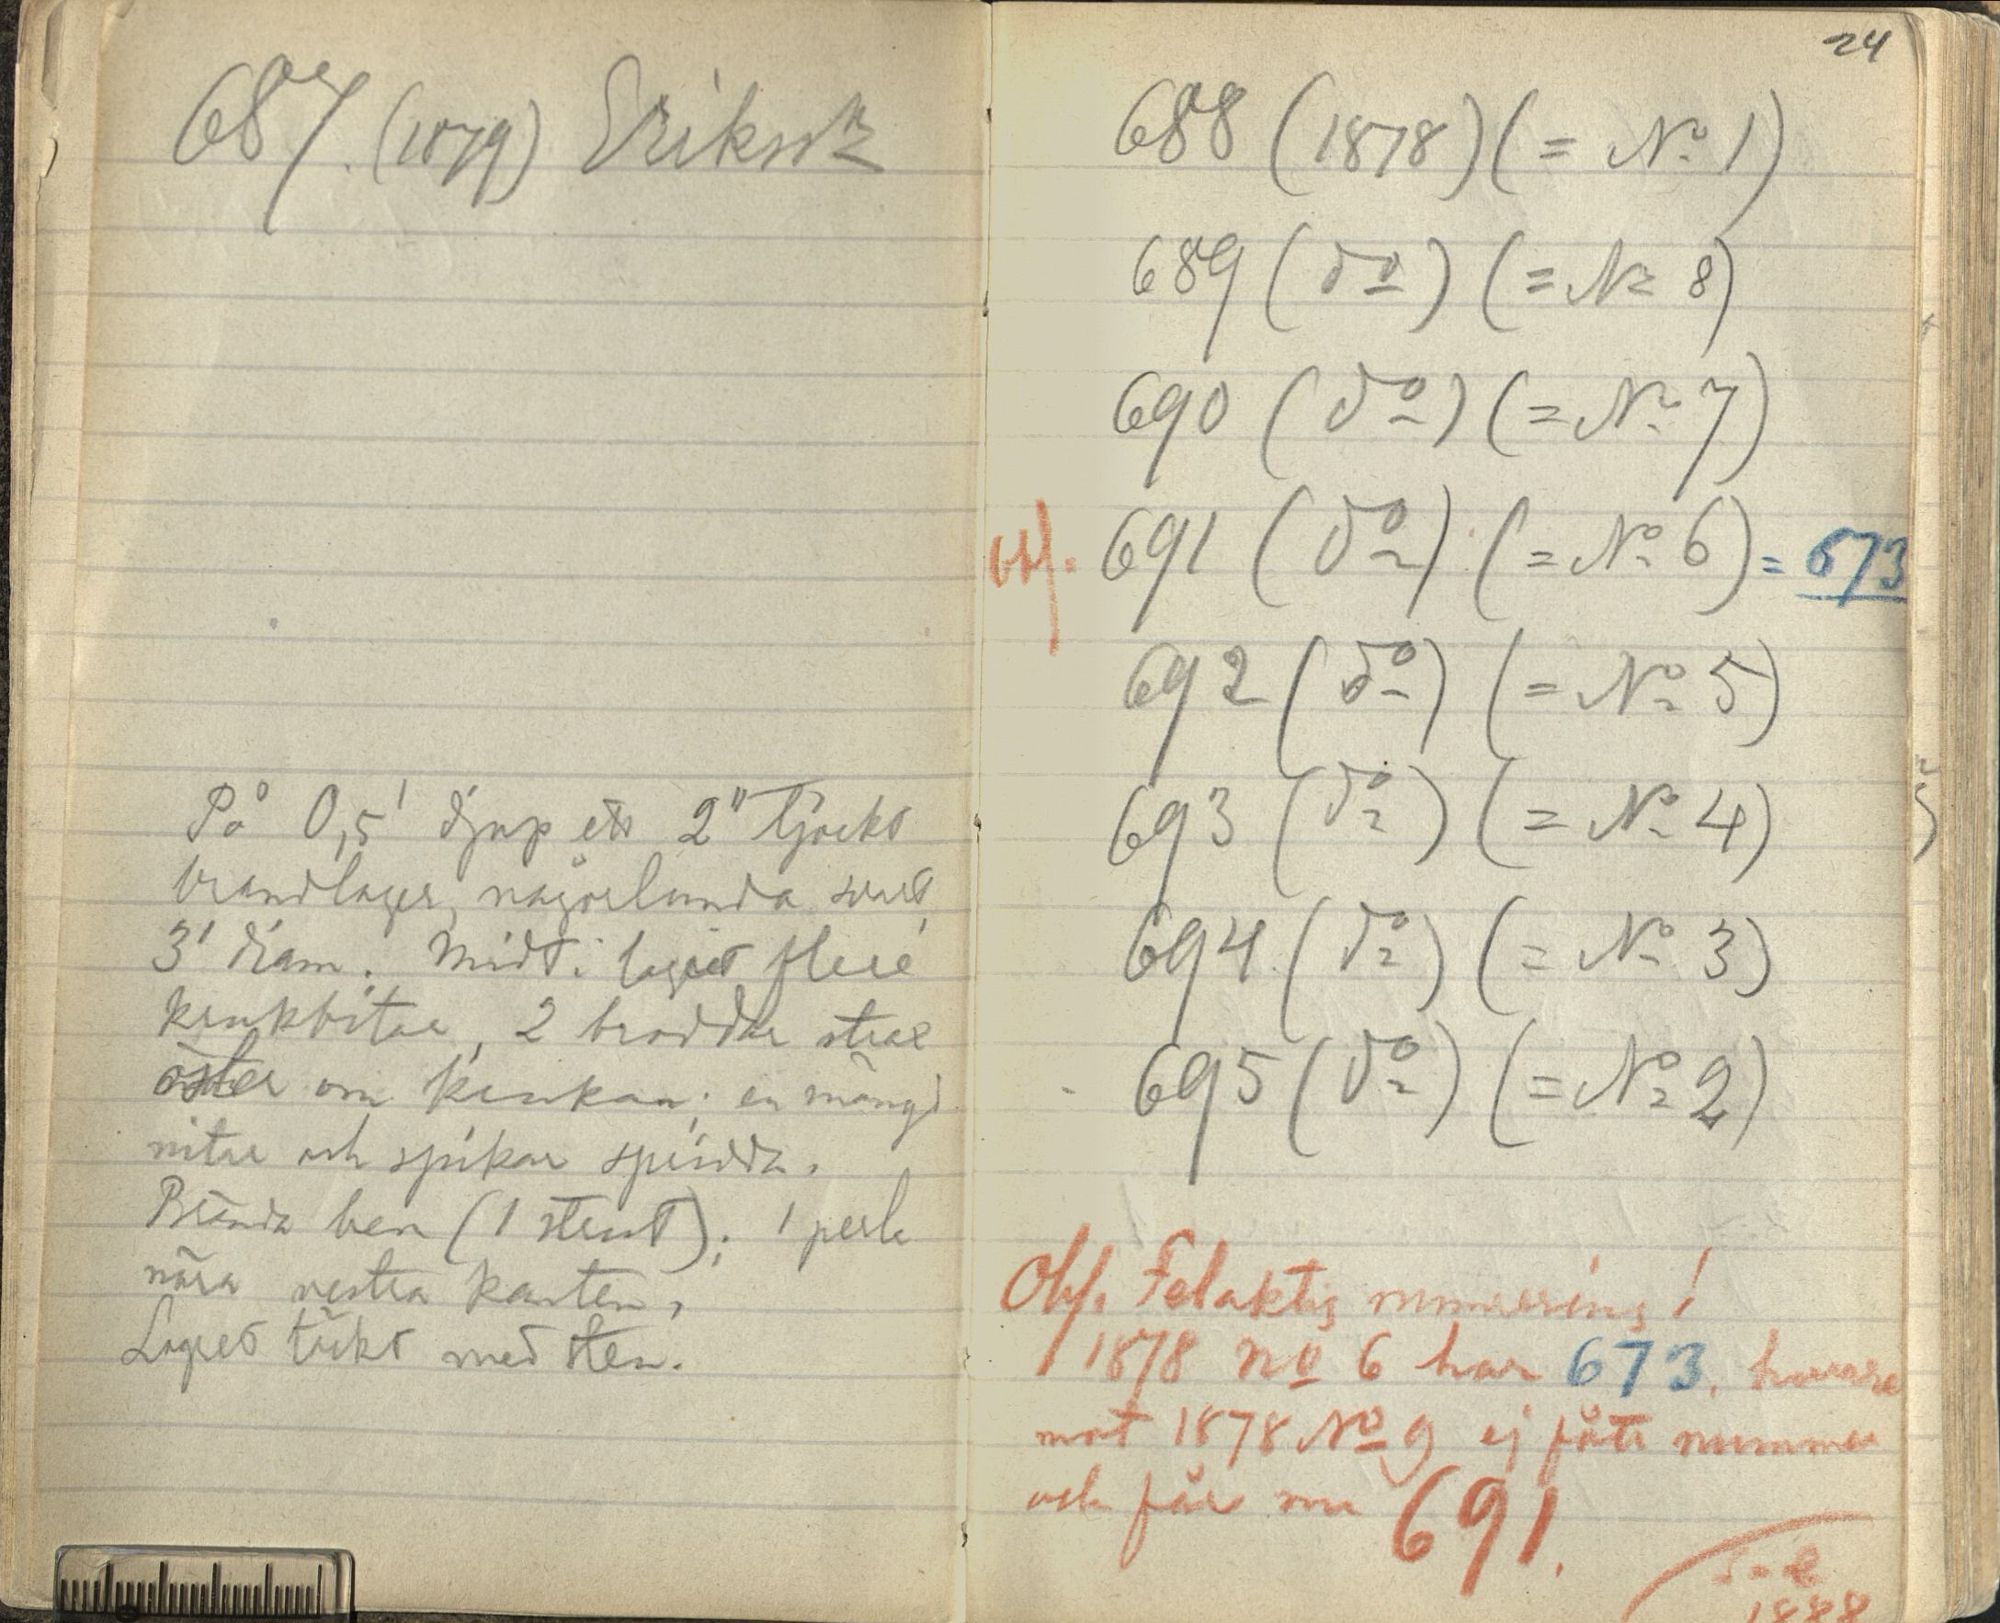 687. (1879) Eriksson
På 0,5' djup ett 2" tjockt
brandlager, någorlunda rundt,
3' diam. Midt i lagret flere
krukbitar, 2 broddar strax
öster om krukan; en mängd
nitar och spikar spridda.
Brända ben (1 stent); 1 perla
nära vestra kanten.
Lagret täckt med sten.
24
688 (1878) (= No 1)
689 (do) (= No 8)
690 (do) (= No 7)
Obs. 691 (do) (= No 6) = 673
692 (do) (= No 5)
693 (do) (= No 4)
694 (do) (= No 3)
695 (do) (= No 2)
Obs. Felaktig numrering!
1878 no 6 har 673, hvare
mot 1878 No 9 ej fått nummer
och får nu 691.
1888